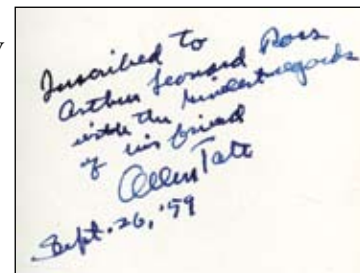 Inscribed to
Arthur Leonard Ross
with the kindest regards
of his friend
Allen Tate
Sept. 26, '59
y